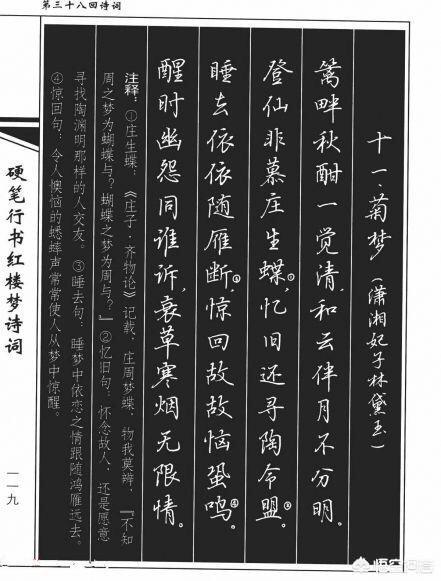 第三十八回诗词
十一、菊梦(潇湘妃子林黛玉)
篱畔秋酣一觉清,和云伴月不分明。
登仙非慕庄生蝶①,忆旧还寻陶令盟②。
睡去依依随雁断③,惊回故故恼蛩鸣④。
醒时幽怨同谁诉,衰草寒烟无限情。
注释:①庄生蝶:《庄子·齐物论》记载,庄周梦蝶,物我莫辨,『不知
周之梦为蝴蝶与?蝴蝶之梦为周与?』②忆旧句:怀念故人,还是愿意
寻找陶渊明那样的人交友。③睡去句:睡梦中依恋之情跟随鸿雁远去。
④惊回句:令人懊恼的蟋蟀声常常使人从梦中惊醒。
硬笔行书红楼梦诗词
一一九
悟空问答